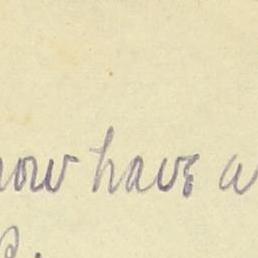 now have a